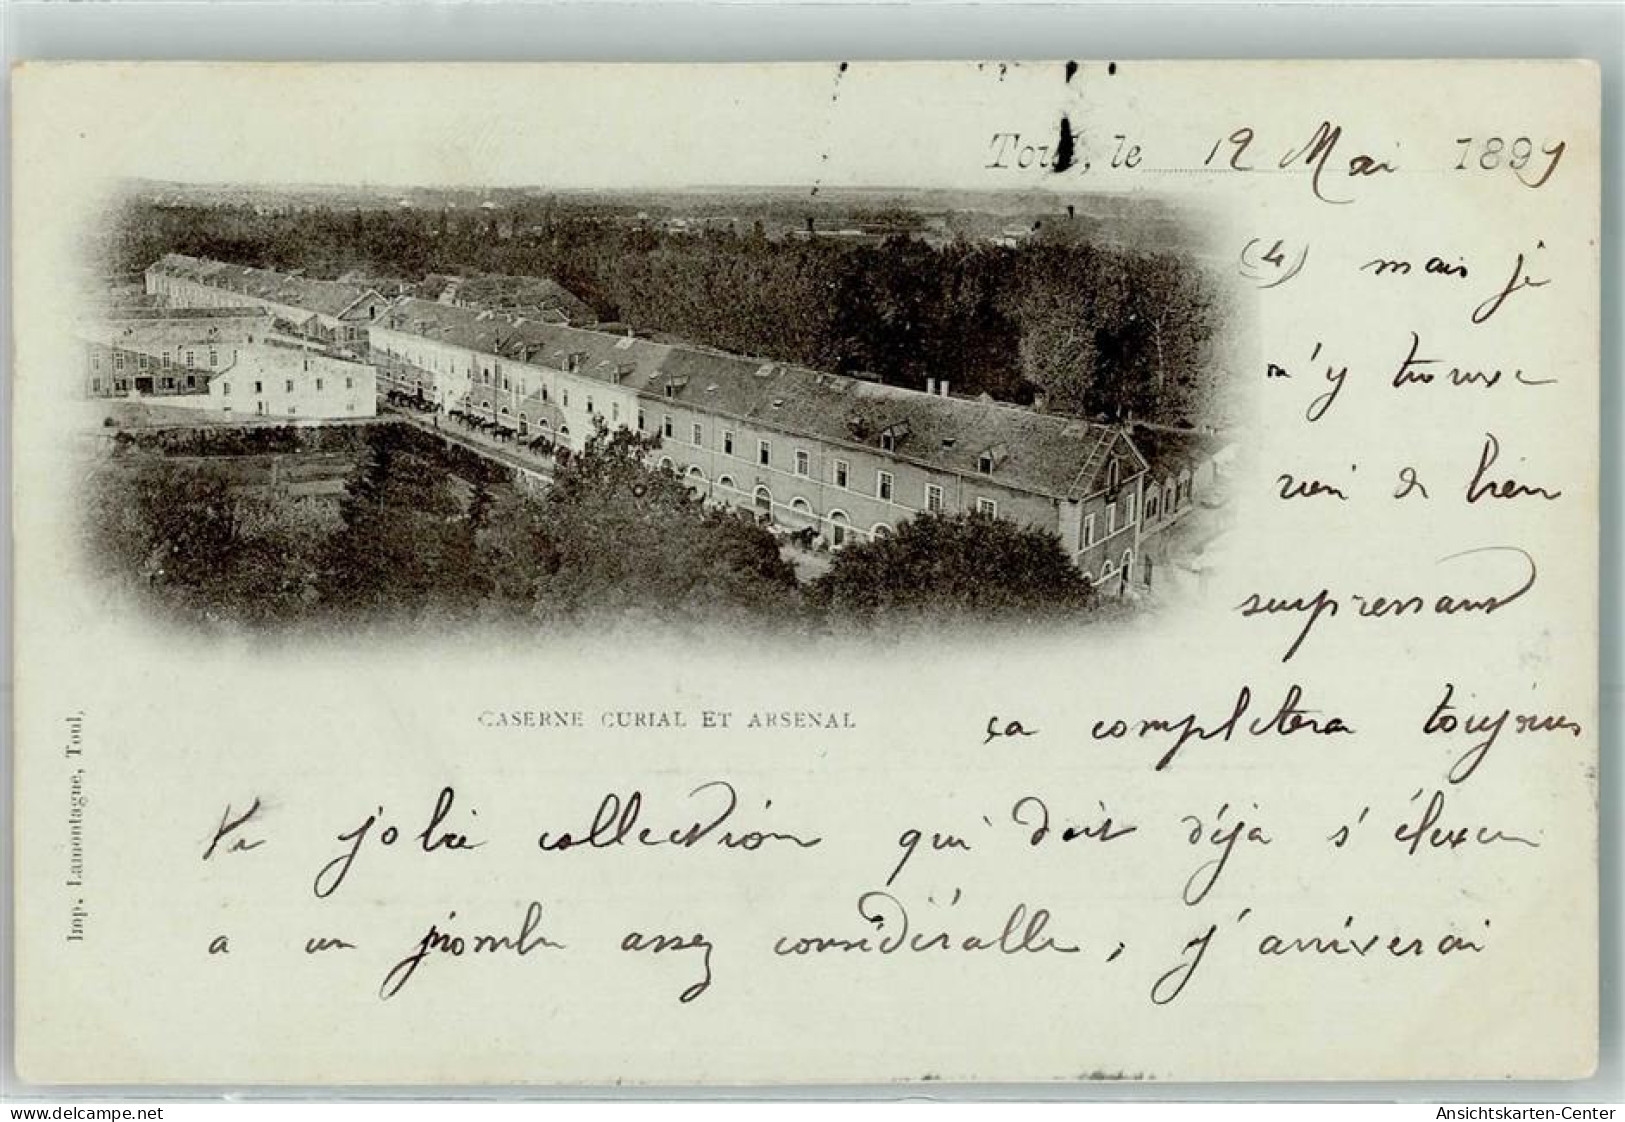 Toul, le 12 Mai 1899
(4) mais je
n'y trouve
rien de bien
surpressant
ça completera toujours
jolie collection qui doit déja s'élever
a un nombre assez considéralle, j'arriverai
CASERNE CURIAL ET ARSENAL
Imp. Lamontagne, Toul,
www.delcampe.net
Ansichtskarten-Center